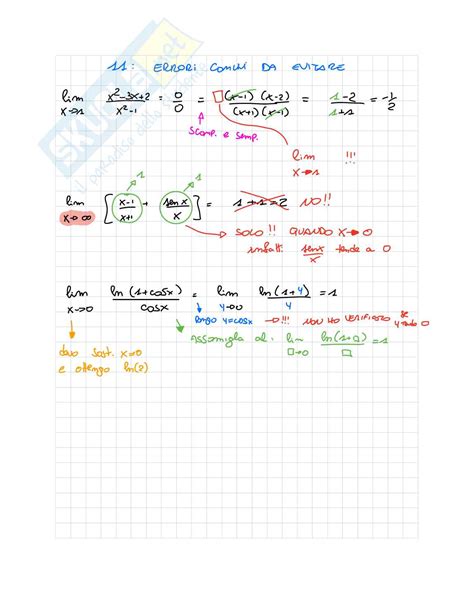 11: ERRORI COMUNI DA EVITARE
lim x→1 (x²-3x+2)/(x²-1) = 0/0 = □ (x-1)(x-2)/(x+1)(x-1) = (1-2)/(1+1) = -1/2
SCOMP. E SEMP.
lim x→1 !!!
1 1
lim x→∞ [(x-1)/(x+1) + sen x/x] = 1+1=2 NO!!
SOLO!! QUANDO X→0
infatti sen x/x tende a 0
lim x→0 ln(1+cosx)/cosx = lim y→0 ln(1+y)/y = 1
pongo y=cosx → !!! NON HO VERIFICATO SE y tende 0
ASSOMIGLIA AL: lim □→0 ln(1+□)/□ = 1
devo sost. x=0
e ottengo ln(2)
SKUOLA.net
il paradiso dello studente